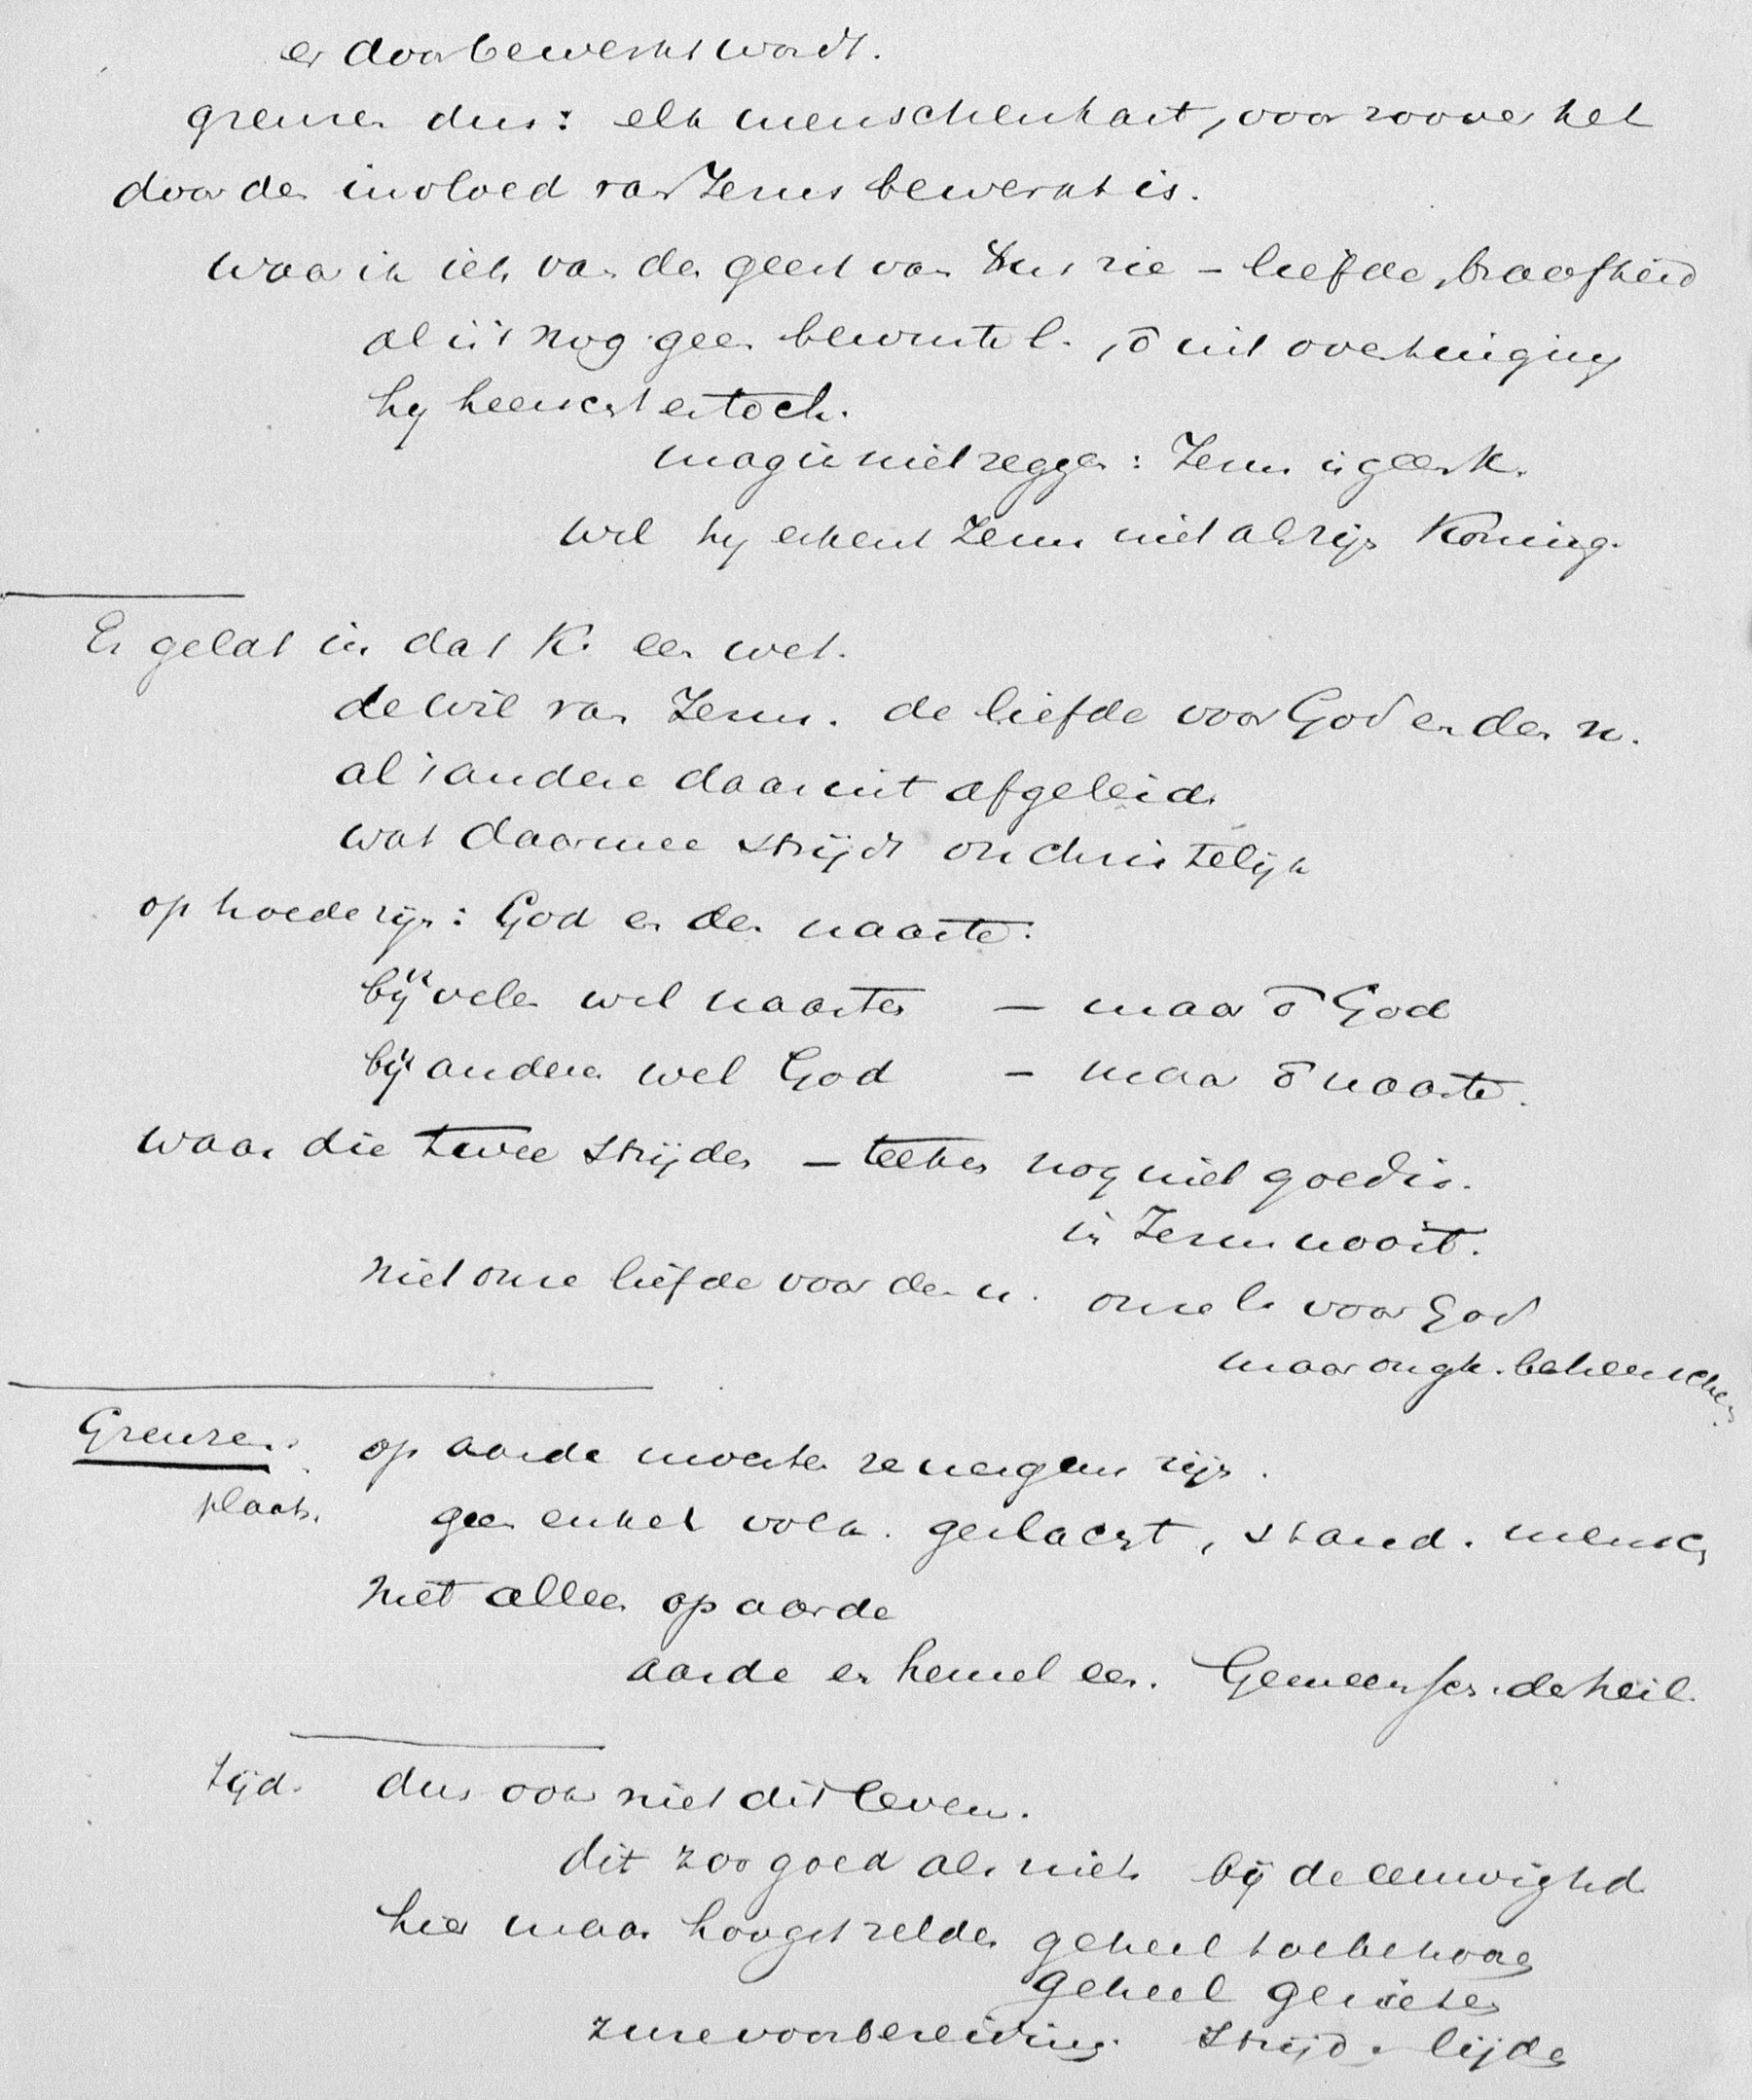 er door bewerkt wordt.
grenzen dus: elk menschenhart, voor zoover het
door den invloed van Jezus bewerkt is.
waar ik iets van den geest van zie – liefde, braafheid
al is 't nog geen bewuste l., ō uit overtuiging
hy heerscht er toch.
mag ik niet zeggen: Jezus is geen k.
wel hy erkent Jezus niet als zijn Koning.
Er geldt in dat K. een wet.
de wil van Jezus. de liefde voor God en den n.
al 't andere daaruit afgeleid.
wat daarmee strijdt onchristelijk
op hoede zijn: God en den naaste.
bij velen wel naasten – maar ō God
bij anderen wel God – maar ō naaste.
waar die twee strijden – teeken nog niet goed is.
in Jezus nooit.
niet onze liefde voor den n. onze l. voor God
maar ongk. beheerschen
Grenzen. op aarde moesten ze nergens zijn.
plaats. geen enkel volk. geslacht, stand. mensch
niet alleen op aarde
aarde en hemel een. Gemeensch. der heil.
tijd. dus ook niet dit leven.
dit zoo goed als niets bij de eeuwighd
hier maar hoogst zelden geheel toebehooren
geheel genieten
zure voorbereiding. Strijd. lijden